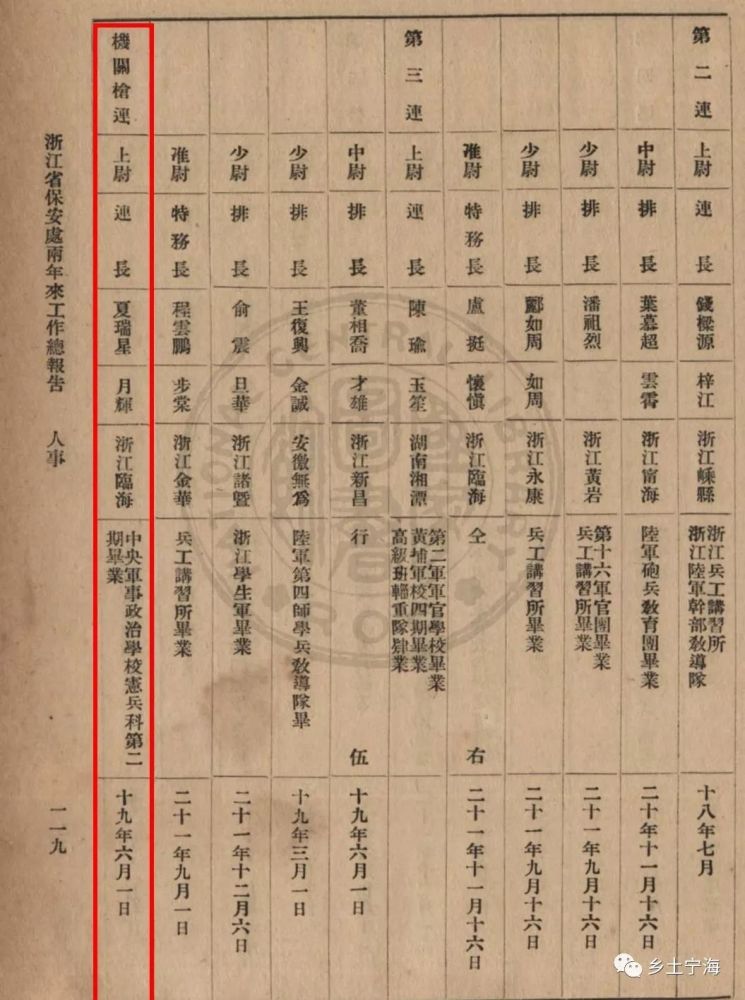 第二連 上尉 連長 錢樑源 梓江 浙江嵊縣 浙江兵工講習所 浙江陸軍幹部教導隊 十八年七月
中尉 排長 葉慕超 雲霄 浙江甯海 陸軍砲兵教育團畢業 二十年十一月十六日
少尉 排長 潘祖烈 浙江黃岩 第十六軍官團畢業 兵工講習所畢業 二十一年九月十六日
少尉 排長 酈如周 如周 浙江永康 兵工講習所畢業 二十一年九月十六日
准尉 特務長 盧挺 懷愼 浙江臨海 仝右 二十一年十一月十六日
第三連 上尉 連長 陳瑜 玉笙 湖南湘潭 第二軍軍官學校畢業 黃埔軍校四期畢業 高級班輜重隊肄業
中尉 排長 董相喬 才雄 浙江新昌 行伍 十九年六月一日
少尉 排長 王復興 金誠 安徽無爲 陸軍第四師學兵敎導隊畢 十九年三月一日
少尉 排長 俞震 旦華 浙江諸暨 浙江學生軍畢業 二十一年十二月六日
准尉 特務長 程雲鵬 步棠 浙江金華 兵工講習所畢業 二十一年九月一日
機關槍連 上尉 連長 夏瑞星 月輝 浙江臨海 中央軍事政治學校憲兵科第二期畢業 十九年六月一日
浙江省保安處兩年來工作總報告 人事 一一九
乡土宁海